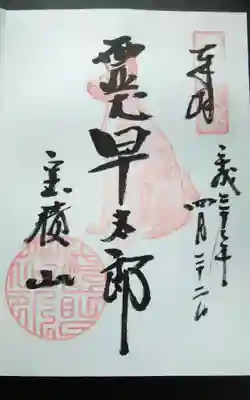 奉拝
平成
四月二十二日
霊犬早太郎
宝積山